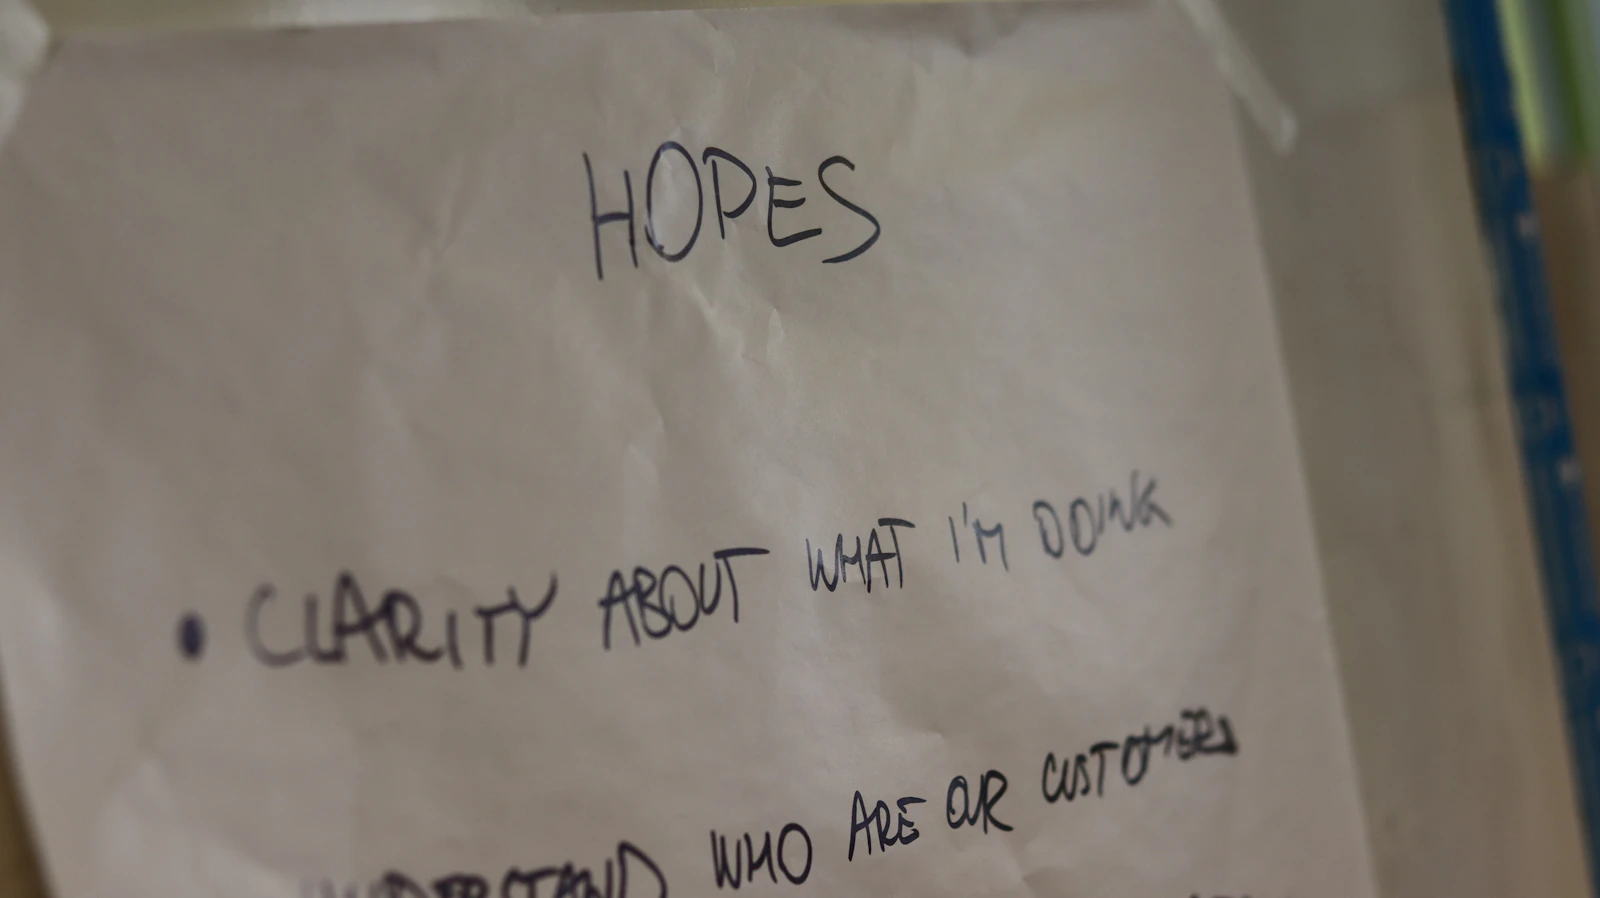 HOPES
• CLARITY ABOUT WHAT I'M DOING
UNDERSTAND WHO ARE OUR CUSTOMERS